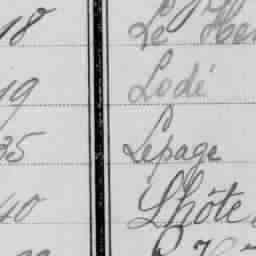 18 Le Hen
19 Lodé
35 Lepage
40 Lhôte